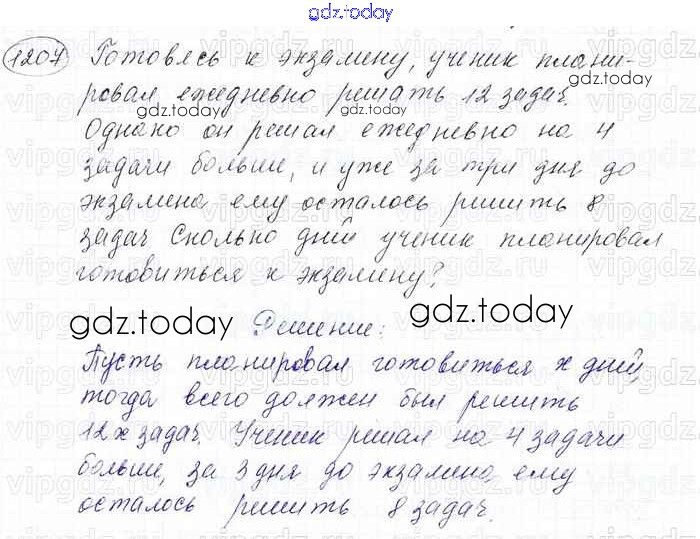 gdz.today
1207 Готовясь к экзамену, ученик плани-
gdz.today
ровал ежедневно решать 12 задач.
gdz.today
Однако он решал ежедневно на 4
задачи больше, и уже за три дня до
экзамена ему осталось решить 8
задач Сколько дней ученик планировал
готовиться к экзамену?
gdz.today
gdz.today Решение:
Пусть планировал готовиться x дней,
тогда всего должен был решить
12x задач. Ученик решал на 4 задачи
больше, за 3 дня до экзамена ему
осталось решить 8 задач.